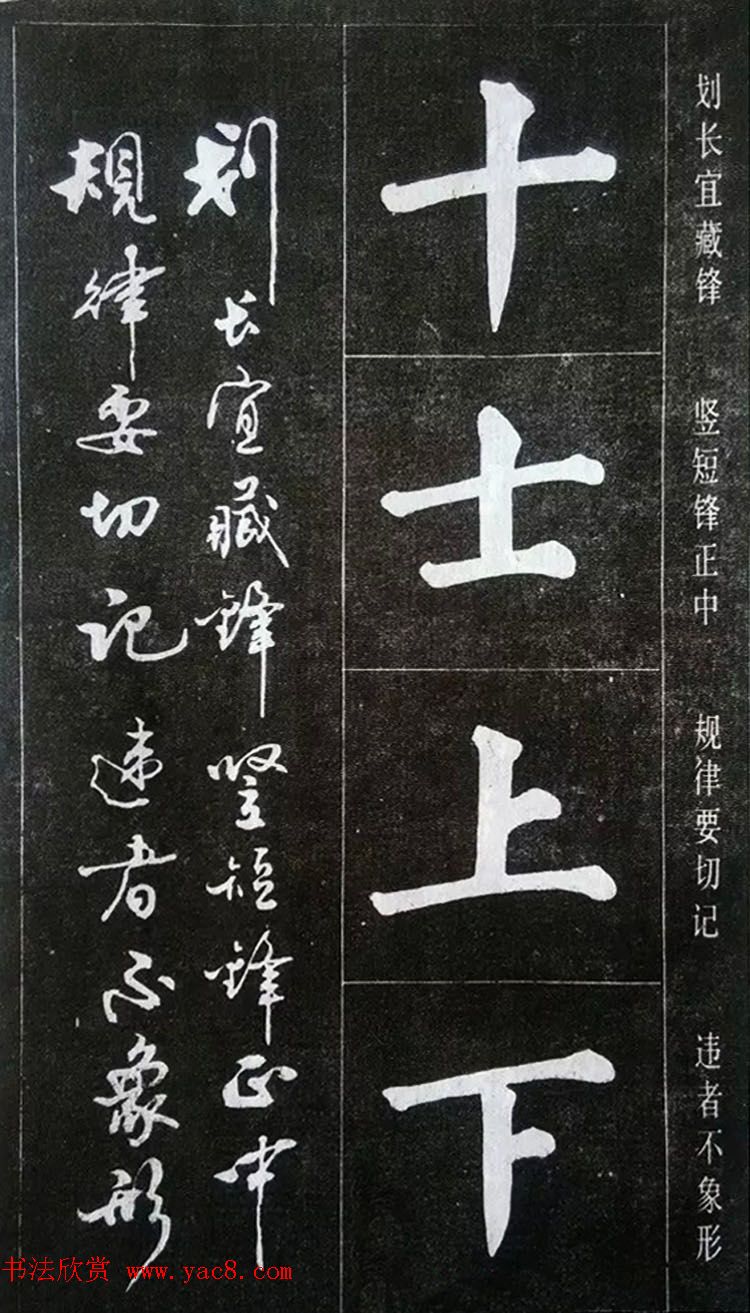 划长宜藏锋 竖短锋正中 规律要切记 违者不象形
十
士
上
下
划长宜藏锋竖短锋正中
规律要切记违者不象形
书法欣赏 www.yac8.com